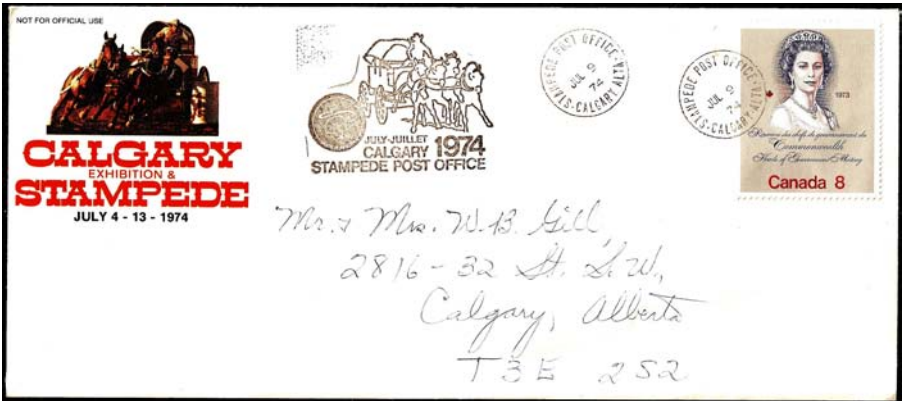 NOT FOR OFFICIAL USE
CALGARY
EXHIBITION &
STAMPEDE
JULY 4 - 13 - 1974
JULY-JUILLET
CALGARY 1974
STAMPEDE POST OFFICE
STAMPEDE POST OFFICE · CALGARY ALTA
JUL 9
74
STAMPEDE POST OFFICE · CALGARY ALTA
JUL 9
74
1973
Réunion des chefs de gouvernement du
Commonwealth
Heads of Government Meeting
Canada 8
Mr. & Mrs. W.B. Gill,
2816-32 St. S.W.,
Calgary, Alberta
T3E 2S2